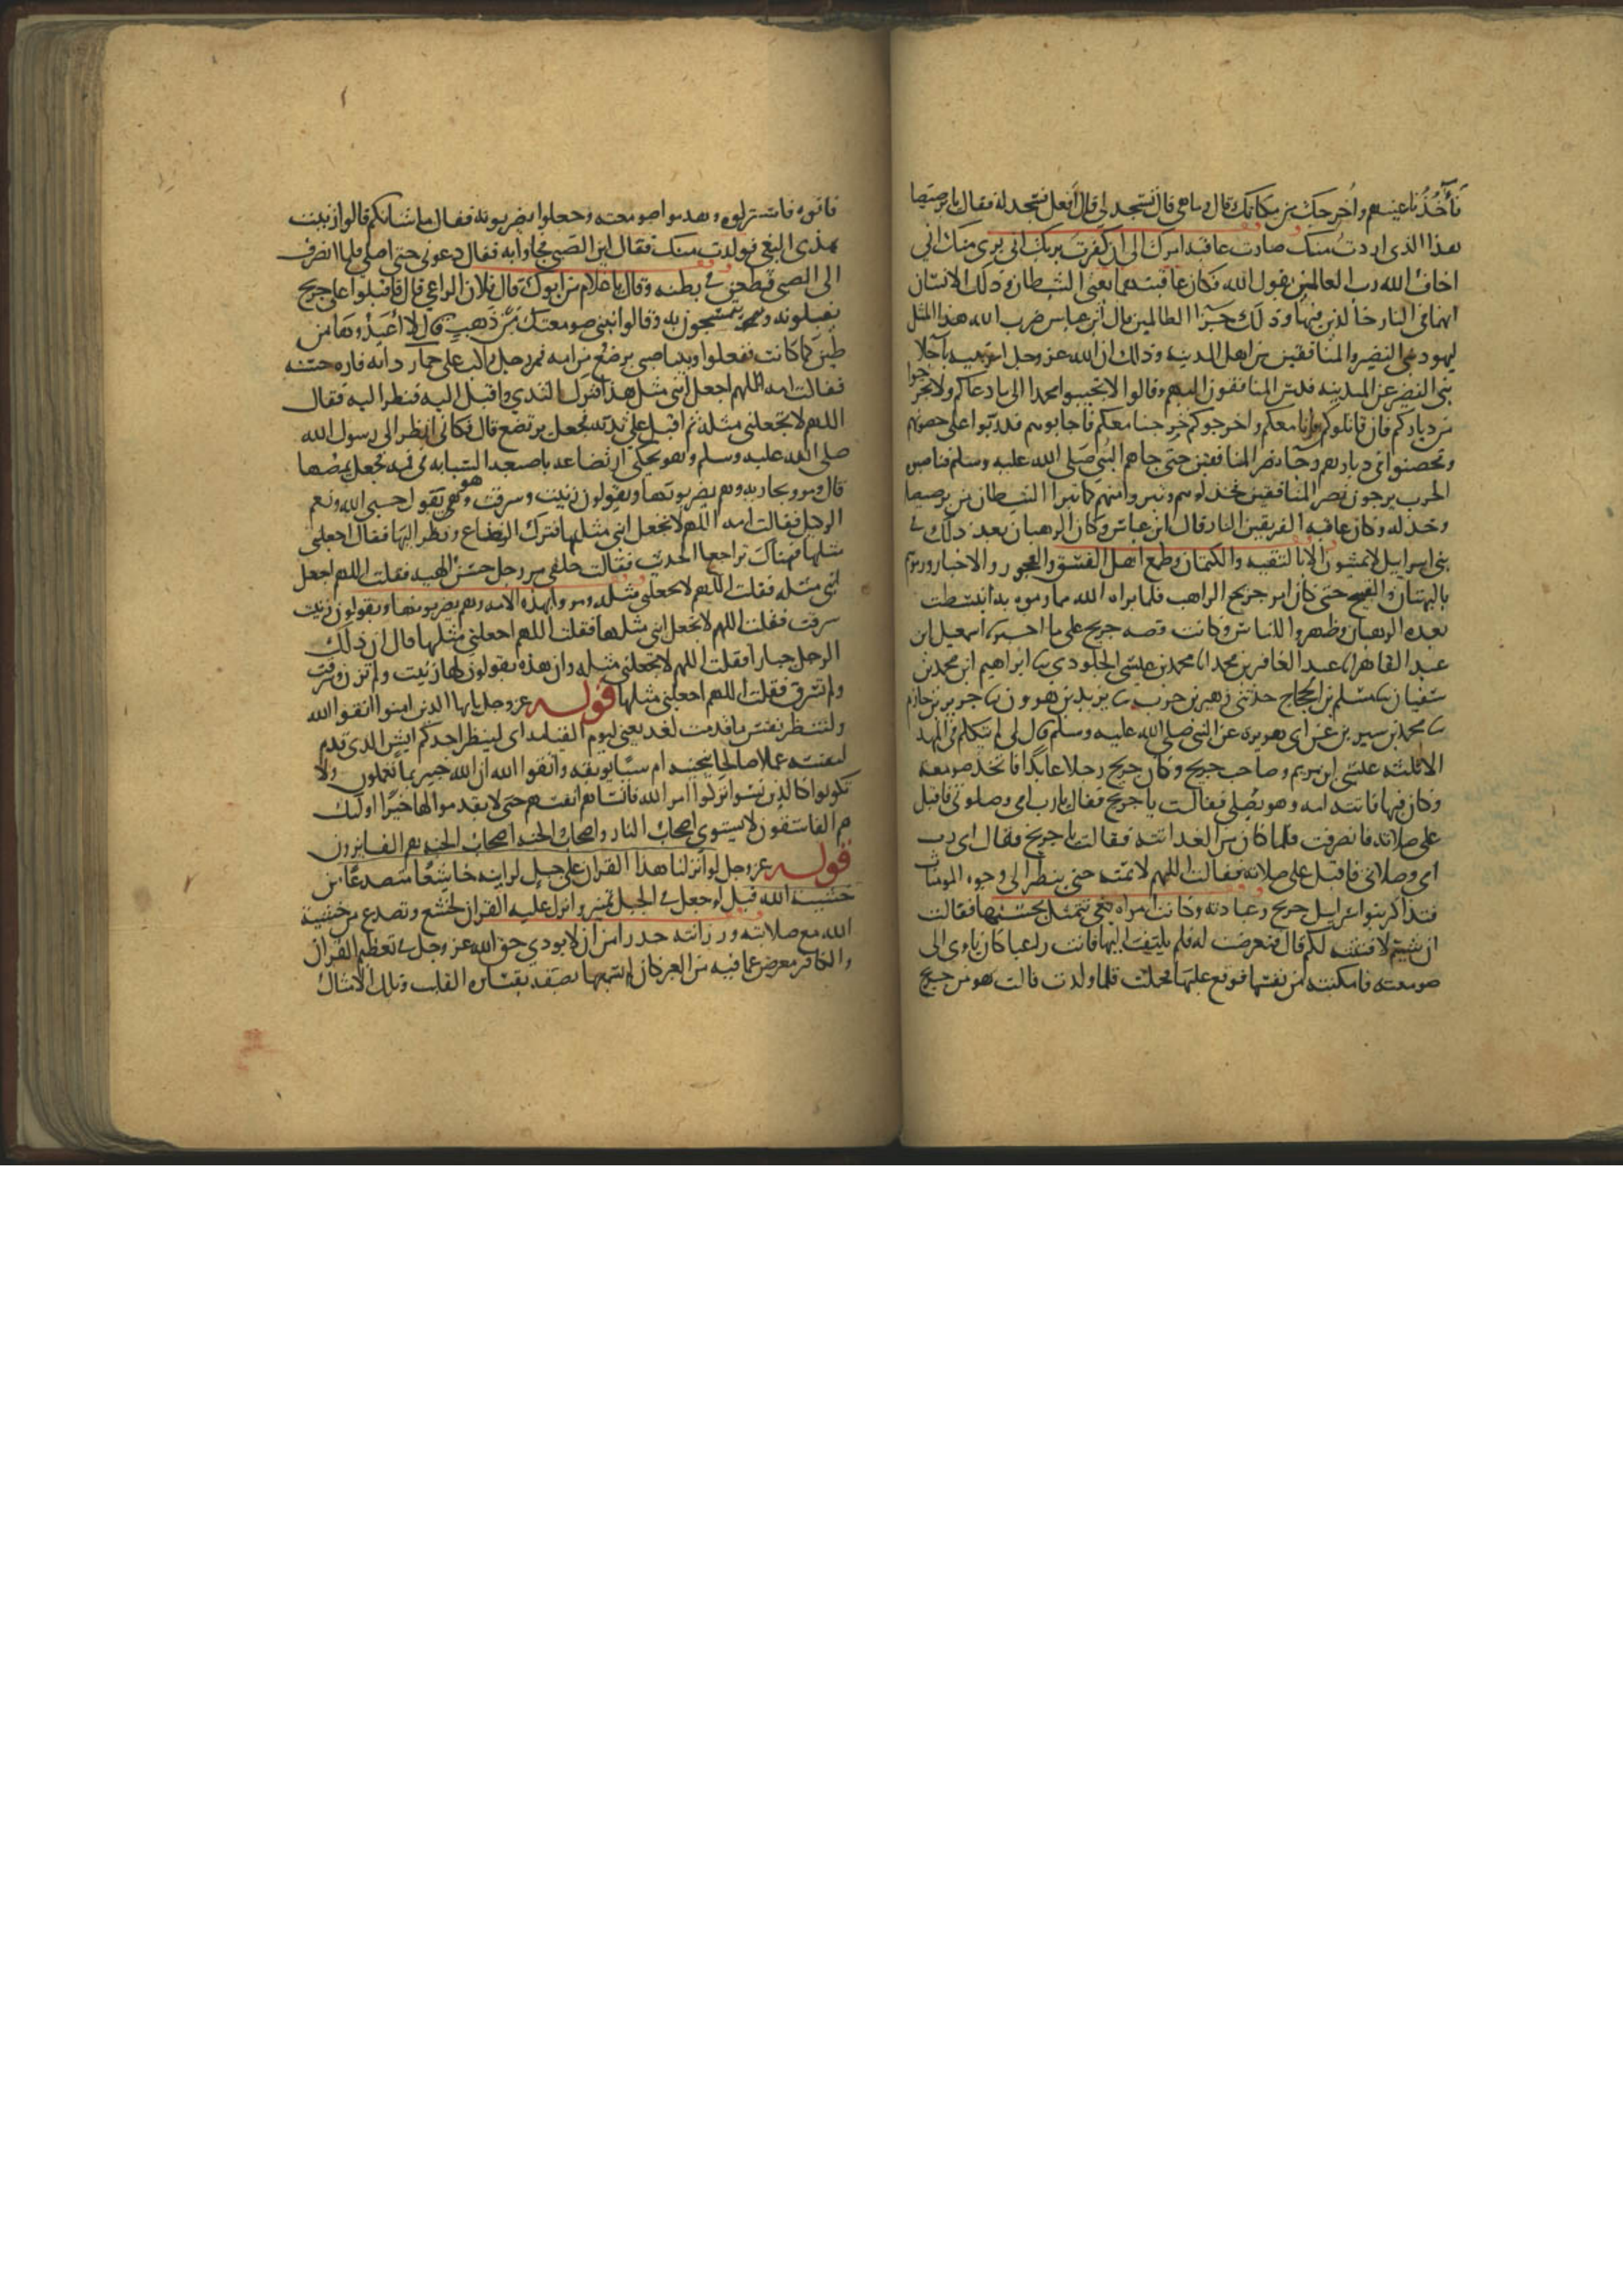 فآخذ باعينهم واخرجك من مكانك قال وما هي قال تسجد لي قال افعل فسجد له فقال يا برصيصا
هذا الذي اردت منك صارت عاقبة امرك الى ان كفرت بربك اني بري منك اني
اخاف الله رب العالمين يقول الله فكان عاقبتهما يعني الشيطان وذلك الانسان
انهما في النار خالدين فيها وذلك جزا الظالمين قال ابن عباس ضرب الله هذا المثل
ليهود بني النضير والمنافقين من اهل المدينه وذلك ان الله عز وجل امر نبيه باجلا
بني النضير عن المدينه فدس المنافقون اليهم وقالوا لا تجيبوا محمدا الى ما دعاكم ولا تخرجوا
من دياركم فان قاتلوكم فانا معكم وان اخرجوكم خرجنا معكم فاجابوهم فدربوا على حصونهم
وتحصنوا في ديارهم رجاء نصر المنافقين حتى جاهم النبي صلى الله عليه وسلم فناصبوه
الحرب يرجون نصر المنافقين فخذلوهم وتبروا منهم كما تبرا الشيطان من برصيصا
وخذله وكان عاقبه الفريقين النار قال ابن عباس وكان الرهبان بعد ذلك في
بني اسرايل لا يمشون الا بالتقيه والكتمان وطمع اهل الفسق والفجور في الاحبار ورموهم
بالبهتان والقبيح حتى كان امر جريج الراهب فلما براه الله مما رموه به انبسطت
بعده الرهبان وظهروا للناس وكانت قصه جريج على ما اخبرنا اسمعيل ابن
عبد القاهر انا عبد الغافر بن محمد انا محمد بن عيسى الجلودي نا ابراهيم ابن محمد بن
سفيان نا مسلم بن الحجاج حدثني زهير بن حرب نا يزيد بن هرون نا جرير بن حازم
نا محمد بن سيرين عن ابي هريره عن النبي صلى الله عليه وسلم قال لم يتكلم في المهد
الا ثلثه عيسى ابن مريم وصاحب جريج وكان جريج رجلا عابدا فاتخذ صومعه
وكان فيها فاتته امه وهو يصلي فقالت يا جريج فقال يا رب امي وصلوتي فاقبل
على صلاته فانصرفت فلما كان من الغد اتته فقالت يا جريج فقال اي رب
امي وصلاتي فاقبل على صلاته فقالت اللهم لا تمته حتى ينظر الى وجوه المومسات
فتذاكر بنوا اسرايل جريج وعبادته وكانت امراه بغي يتمثل بحسنها فقالت
ان شيتم لافتننه لكم قال فتعرضت له فلم يلتفت اليها فاتت راعيا كان ياوي الى
صومعته فامكنته من نفسها فوقع عليها فحملت فلما ولدت قالت هو من جريج
فاتوه فاستنزلوه وهدموا صومعته وجعلوا يضربونه فقال ما شانكم قالوا زنيت
بهذي البغي فولدت منك فقال اين الصبي فجاوا به فقال دعوني حتى اصلي فلما انصرف
الى الصبي فطعن في بطنه وقال يا غلام من ابوك قال فلان الراعي قال فاقبلوا على جريج
يقبلونه ويتمسحون به وقالوا نبني صومعتك من ذهب قال لا اعيدوها من
طين كما كانت ففعلوا وبينا صبي يرضع من امه فمر رجل راكب على حمار دابه فاره حسنه
فقالت امه اللهم اجعل ابني مثل هذا فترك الثدي واقبل اليه فنظر اليه فقال
اللهم لا تجعلني مثله ثم اقبل على ثديه فجعل يرتضع قال فكاني انظر الى رسول الله
صلى الله عليه وسلم وهو يحكي ارتضاعه باصبعه السبابه في فمه فجعل يمصها
قال ومر بجاريه وهم يضربونها ويقولون زنيت وسرقت وهي تقول حسبي الله ونعم
الوكيل فقالت امه اللهم لا تجعل ابني مثلها فترك الرضاع ونظر اليها فقال اجعلني
مثلها فهناك تراجعا الحديث فقالت حلقى مر رجل حسن الهيه فقلت اللهم اجعل
ابني مثله فقلت اللهم لا تجعلني مثله ومروا بهذه الامه وهم يضربونها ويقولون زنيت
سرقت فقلت اللهم لا تجعل ابني مثلها فقلت اللهم اجعلني مثلها قال ان ذلك
الرجل جبارا فقلت اللهم لا تجعلني مثله وان هذه يقولون لها زنيت ولم تزن وسرقت
ولم تسرق فقلت اللهم اجعلني مثلها قوله عز وجل يا ايها الذين امنوا اتقوا الله
ولتنظر نفس ما قدمت لغد يعني ليوم القيامه اي لينظر احدكم ايش الذي قدم
لنفسه عملا صالحا ينجيه ام سيا يوبقه واتقوا الله ان الله خبير بما تعملون ولا
تكونوا كالذين نسوا الله تركوا امر الله فانساهم انفسهم حتى لا يقدموا لها خيرا اوليك
هم الفاسقون لا يستوي اصحاب النار واصحاب الجنه اصحاب الجنه هم الفايزون
قوله عز وجل لو انزلنا هذا القران على جبل لرايته خاشعا متصدعا من
خشية الله قيل لو جعل في الجبل تمييز وانزل عليه القران لخشع وتصدع من خشية
الله مع صلابته ورزانته حذرا من ان لا يودي حق الله عز وجل في تعظيم القران
والكافر معرض عما فيه من العبر كان لم يسمعها يصفه بقساوه القلب وتلك الامثال